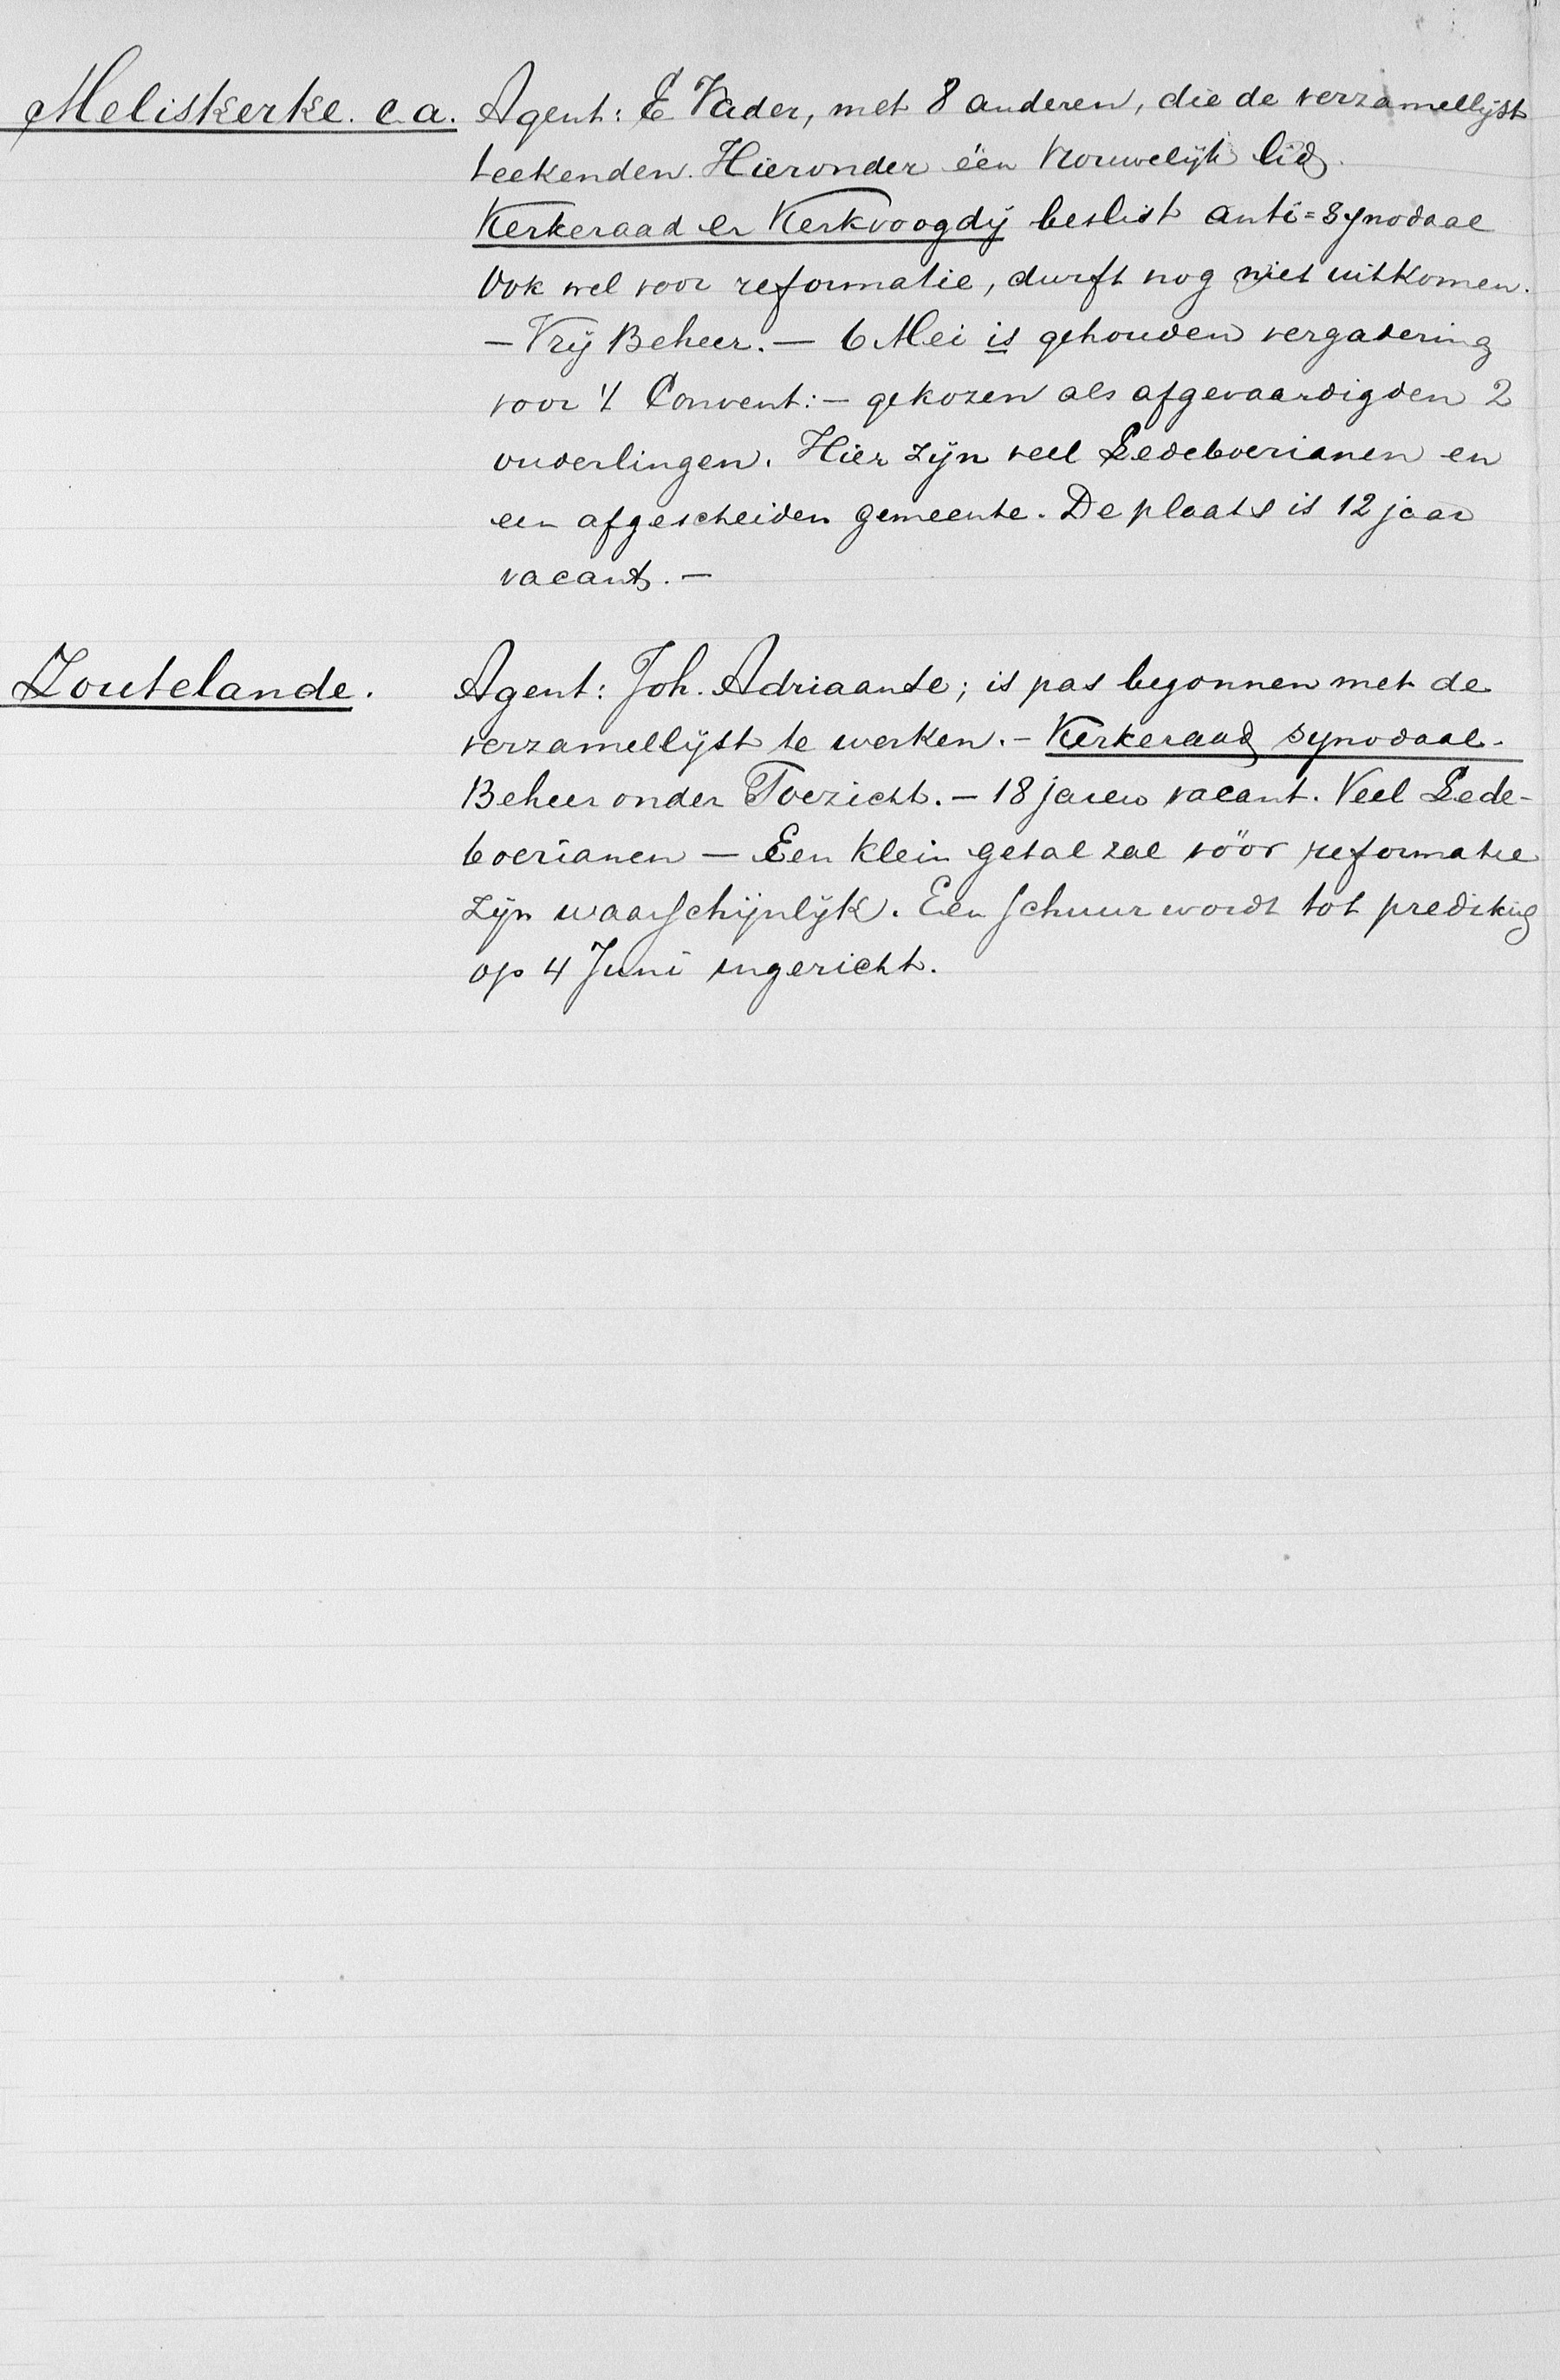 Meliskerke. c.a. Agent: E Vader, met 8 anderen, die de verzamellijst
teekenden. Hieronder één vrouwelijk lid.
Kerkeraad en Kerkvoogdij beslist anti=synodaal
Ook wel voor reformatie, durft nog niet uitkomen.
— Vrij Beheer. — 6 Mei is gehouden vergadering
voor 't Convent: — gekozen als afgevaardigden 2
ouderlingen. Hier zijn veel Ledeboerianen en
een afgescheiden gemeente. De plaats is 12 jaar
vacant. —
Zoutelande. Agent: Joh. Adriaanse; is pas begonnen met de
verzamellijst te werken. — Kerkeraad synodaal -
Beheer onder Toezicht. — 18 jaren vacant. Veel Lede-
boerianen — Een klein getal zal vóór reformatie
zijn waarschijnlijk. Een schuur wordt tot prediking
op 4 Juni ingericht.